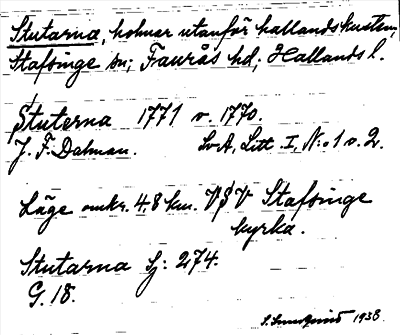 Stutarna, holmar utanför hallandskusten,
Stafsinge sn; Faurås hd; Hallands l.
Stuterna 1771 o. 1770.
J. F. Dalman. SvA, Litt. I, N:o 1 o. 2.
Läge omkr. 4,8 km. VSV Stafsinge
kyrka.
Stutarna Sj: 274.
G. 18.
1938.